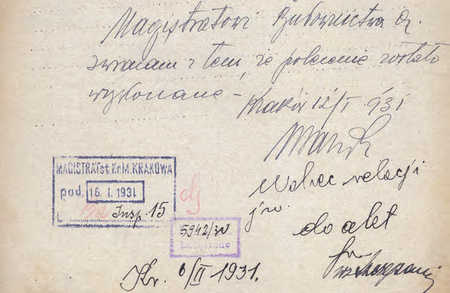 Magistratowi Budownictwa
zwracam z tem, że polecenie zostało
wykonane –
Kraków 12/I 931
MAGISTRAT st. kr. M. KRAKOWA
pod. 16. I. 1931
Insp. 15
5942/30
Wobec relacji
jw.
do akt
Kr. 6/II 1931.